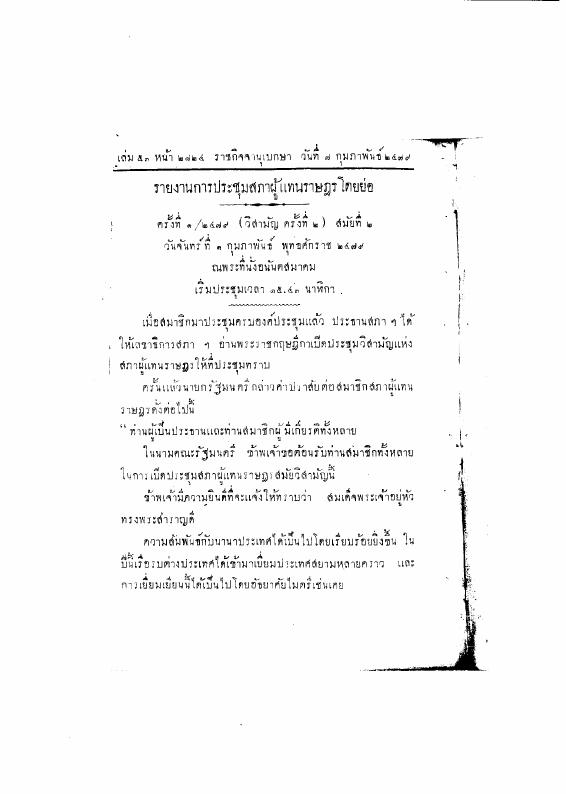 เล่ม ๕๓ หน้า ๒๘๒๔ ราชกิจจานุเบกษา วันที่ ๗ กุมภาพันธ์ ๒๔๗๙
รายงานการประชุมสภาผู้แทนราษฎร โดยย่อ
ครั้งที่ ๑/๒๔๗๙ (วิสามัญ ครั้งที่ ๒) สมัยที่ ๒
วันจันทร์ที่ ๑ กุมภาพันธ์ พุทธศักราช ๒๔๗๙
ณพระที่นั่งอนันตสมาคม
เริ่มประชุมเวลา ๑๕.๔๓ นาฬิกา
เมื่อสมาชิกมาประชุมครบองค์ประชุมแล้ว ประธานสภา ฯ ได้
ให้เลขาธิการสภา ฯ อ่านพระราชกฤษฎีกาเปิดประชุมวิสามัญแห่ง
สภาผู้แทนราษฎรให้ที่ประชุมทราบ
ครั้นแล้วนายกรัฐมนตรี กล่าวคำปราศัยต่อสมาชิกสภาผู้แทน
ราษฎรดั่งต่อไปนี้
“ ท่านผู้เป็นประธานและท่านสมาชิกผู้มีเกียรติทั้งหลาย
ในนามคณะรัฐมนตรี ข้าพเจ้าขอต้อนรับท่านสมาชิกทั้งหลาย
ในการเปิดประชุมสภาผู้แทนราษฎรสมัยวิสามัญนี้
ข้าพเจ้ามีความยินดีที่จะแจ้งให้ทราบว่า สมเด็จพระเจ้าอยู่หัว
ทรงพระสำราญดี
ความสัมพันธ์กับนานาประเทศได้เป็นไปโดยเรียบร้อยยิ่งขึ้น ใน
ปีนี้เรือรบต่างประเทศได้เข้ามาเยี่ยมประเทศสยามหลายคราว และ
การเยี่ยมเยียนนี้ได้เป็นไปโดยอัธยาศัยไมตรีเช่นเคย